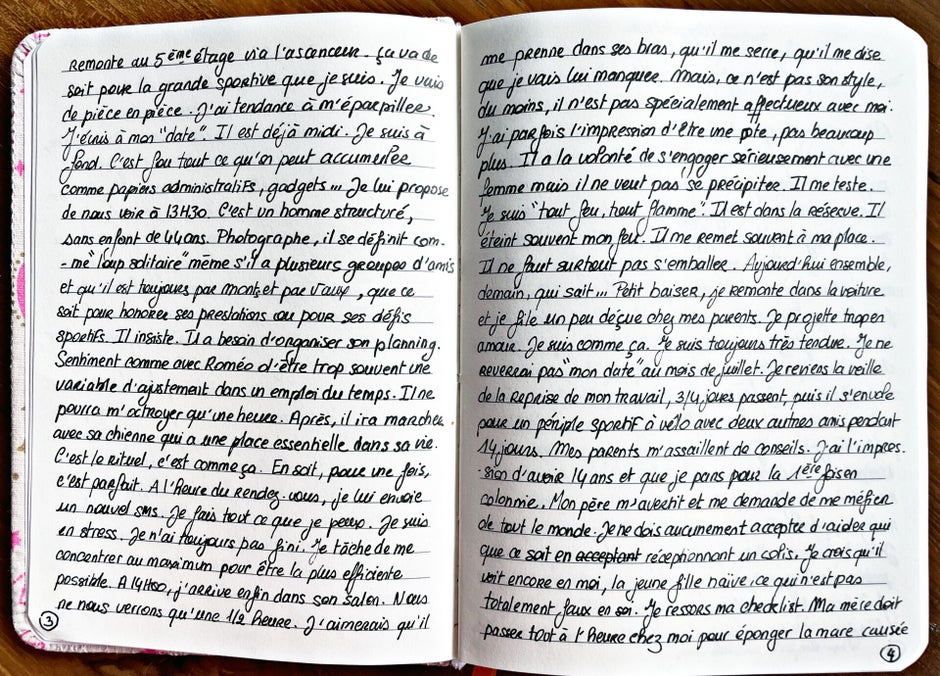 remonte au 5ème étage via l'ascenceur. ça va de
soit pour la grande sportive que je suis. Je vais
de pièce en pièce. J'ai tendance à m'éparpiller.
J'écris à mon "date". Il est déjà midi. Je suis à
fond. C'est fou tout ce qu'on peut accumuler
comme papiers administratifs, gadgets... Je lui propose
de nous voir à 13H30. C'est un homme structuré,
sans enfant de 44 ans. Photographe, il se définit com-
-me "loup solitaire" même s'il a plusieurs groupes d'amis
et qu'il est toujours par monts et par vaux, que ce
soit pour honorer ses prestations ou pour ses défis
sportifs. Il insiste. Il a besoin d'organiser son planning.
Sentiment comme avec Roméo d'être trop souvent une
variable d'ajustement dans un emploi du temps. Il ne
pourra m'octroyer qu'une heure. Après, il ira marcher
avec sa chienne qui a une place essentielle dans sa vie.
C'est le rituel, c'est comme ça. En soit, pour une fois,
c'est parfait. A l'heure du rendez-vous, je lui envoie
un nouvel sms. Je fais tout ce que je peux. Je suis
en stress. Je n'ai toujours pas fini. Je tâche de me
concentrer au maximum pour être la plus efficiente
possible. A 14H00, j'arrive enfin dans son salon. Nous
ne nous verrons qu'une 1/2 heure. J'aimerais qu'il
3
me prenne dans ses bras, qu'il me serre, qu'il me dise
que je vais lui manquer. Mais, ce n'est pas son style,
du moins, il n'est pas spécialement affectueux avec moi.
J'ai parfois l'impression d'être une pote, pas beaucoup
plus. Il a la volonté de s'engager sérieusement avec une
femme mais il ne veut pas se précipiter. Il me teste.
Je suis "tout feu, tout flamme". Il est dans la réserve. Il
éteint souvent mon feu. Il me remet souvent à ma place.
Il ne faut surtout pas s'emballer. Aujourd'hui ensemble,
demain, qui sait... Petit baiser, je remonte dans la voiture
et je file un peu déçue chez mes parents. Je projette trop en
amour. Je suis comme ça. Je suis toujours très tendre. Je ne
reverrai pas "mon date" au mois de juillet. Je reviens la veille
de la reprise de mon travail, 3/4 jours passent, puis il s'envole
pour un périple sportif à vélo avec deux autres amis pendant
14 jours. Mes parents m'assaillent de conseils. J'ai l'impres.
-sion d'avoir 14 ans et que je pars pour la 1ère fois en
colonnie. Mon père m'avertit et me demande de me méfier
de tout le monde. Je ne dois aucunement accepter d'aider qui
que ce soit en acceptant réceptionnant un colis. Je crois qu'il
voit encore en moi, la jeune fille naïve, ce qui n'est pas
totalement faux en soi. Je ressors ma checklist. Ma mère doit
passer tout à l'heure chez moi pour éponger la mare causée
4